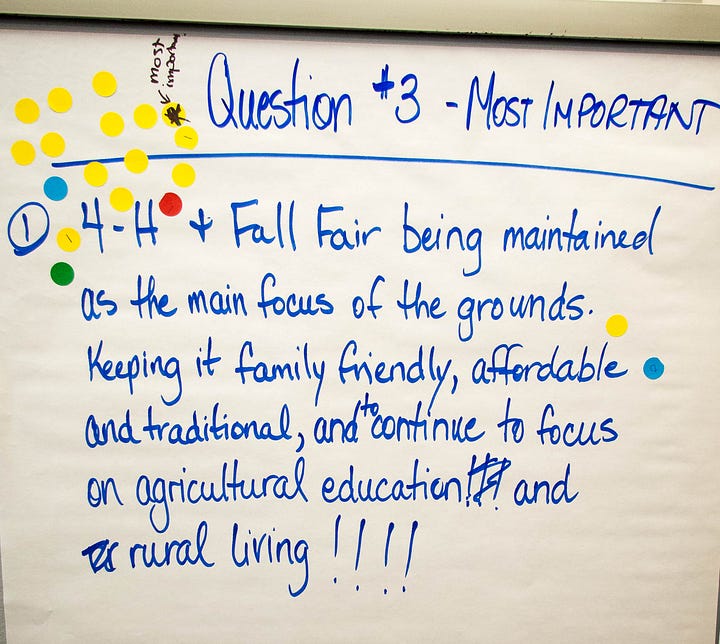 most
important
Question #3 - MOST IMPORTANT
① 4-H + Fall Fair being maintained
as the main focus of the grounds.
Keeping it family friendly, affordable
and traditional, and to continue to focus
on agricultural education!! and
rural living !!!!